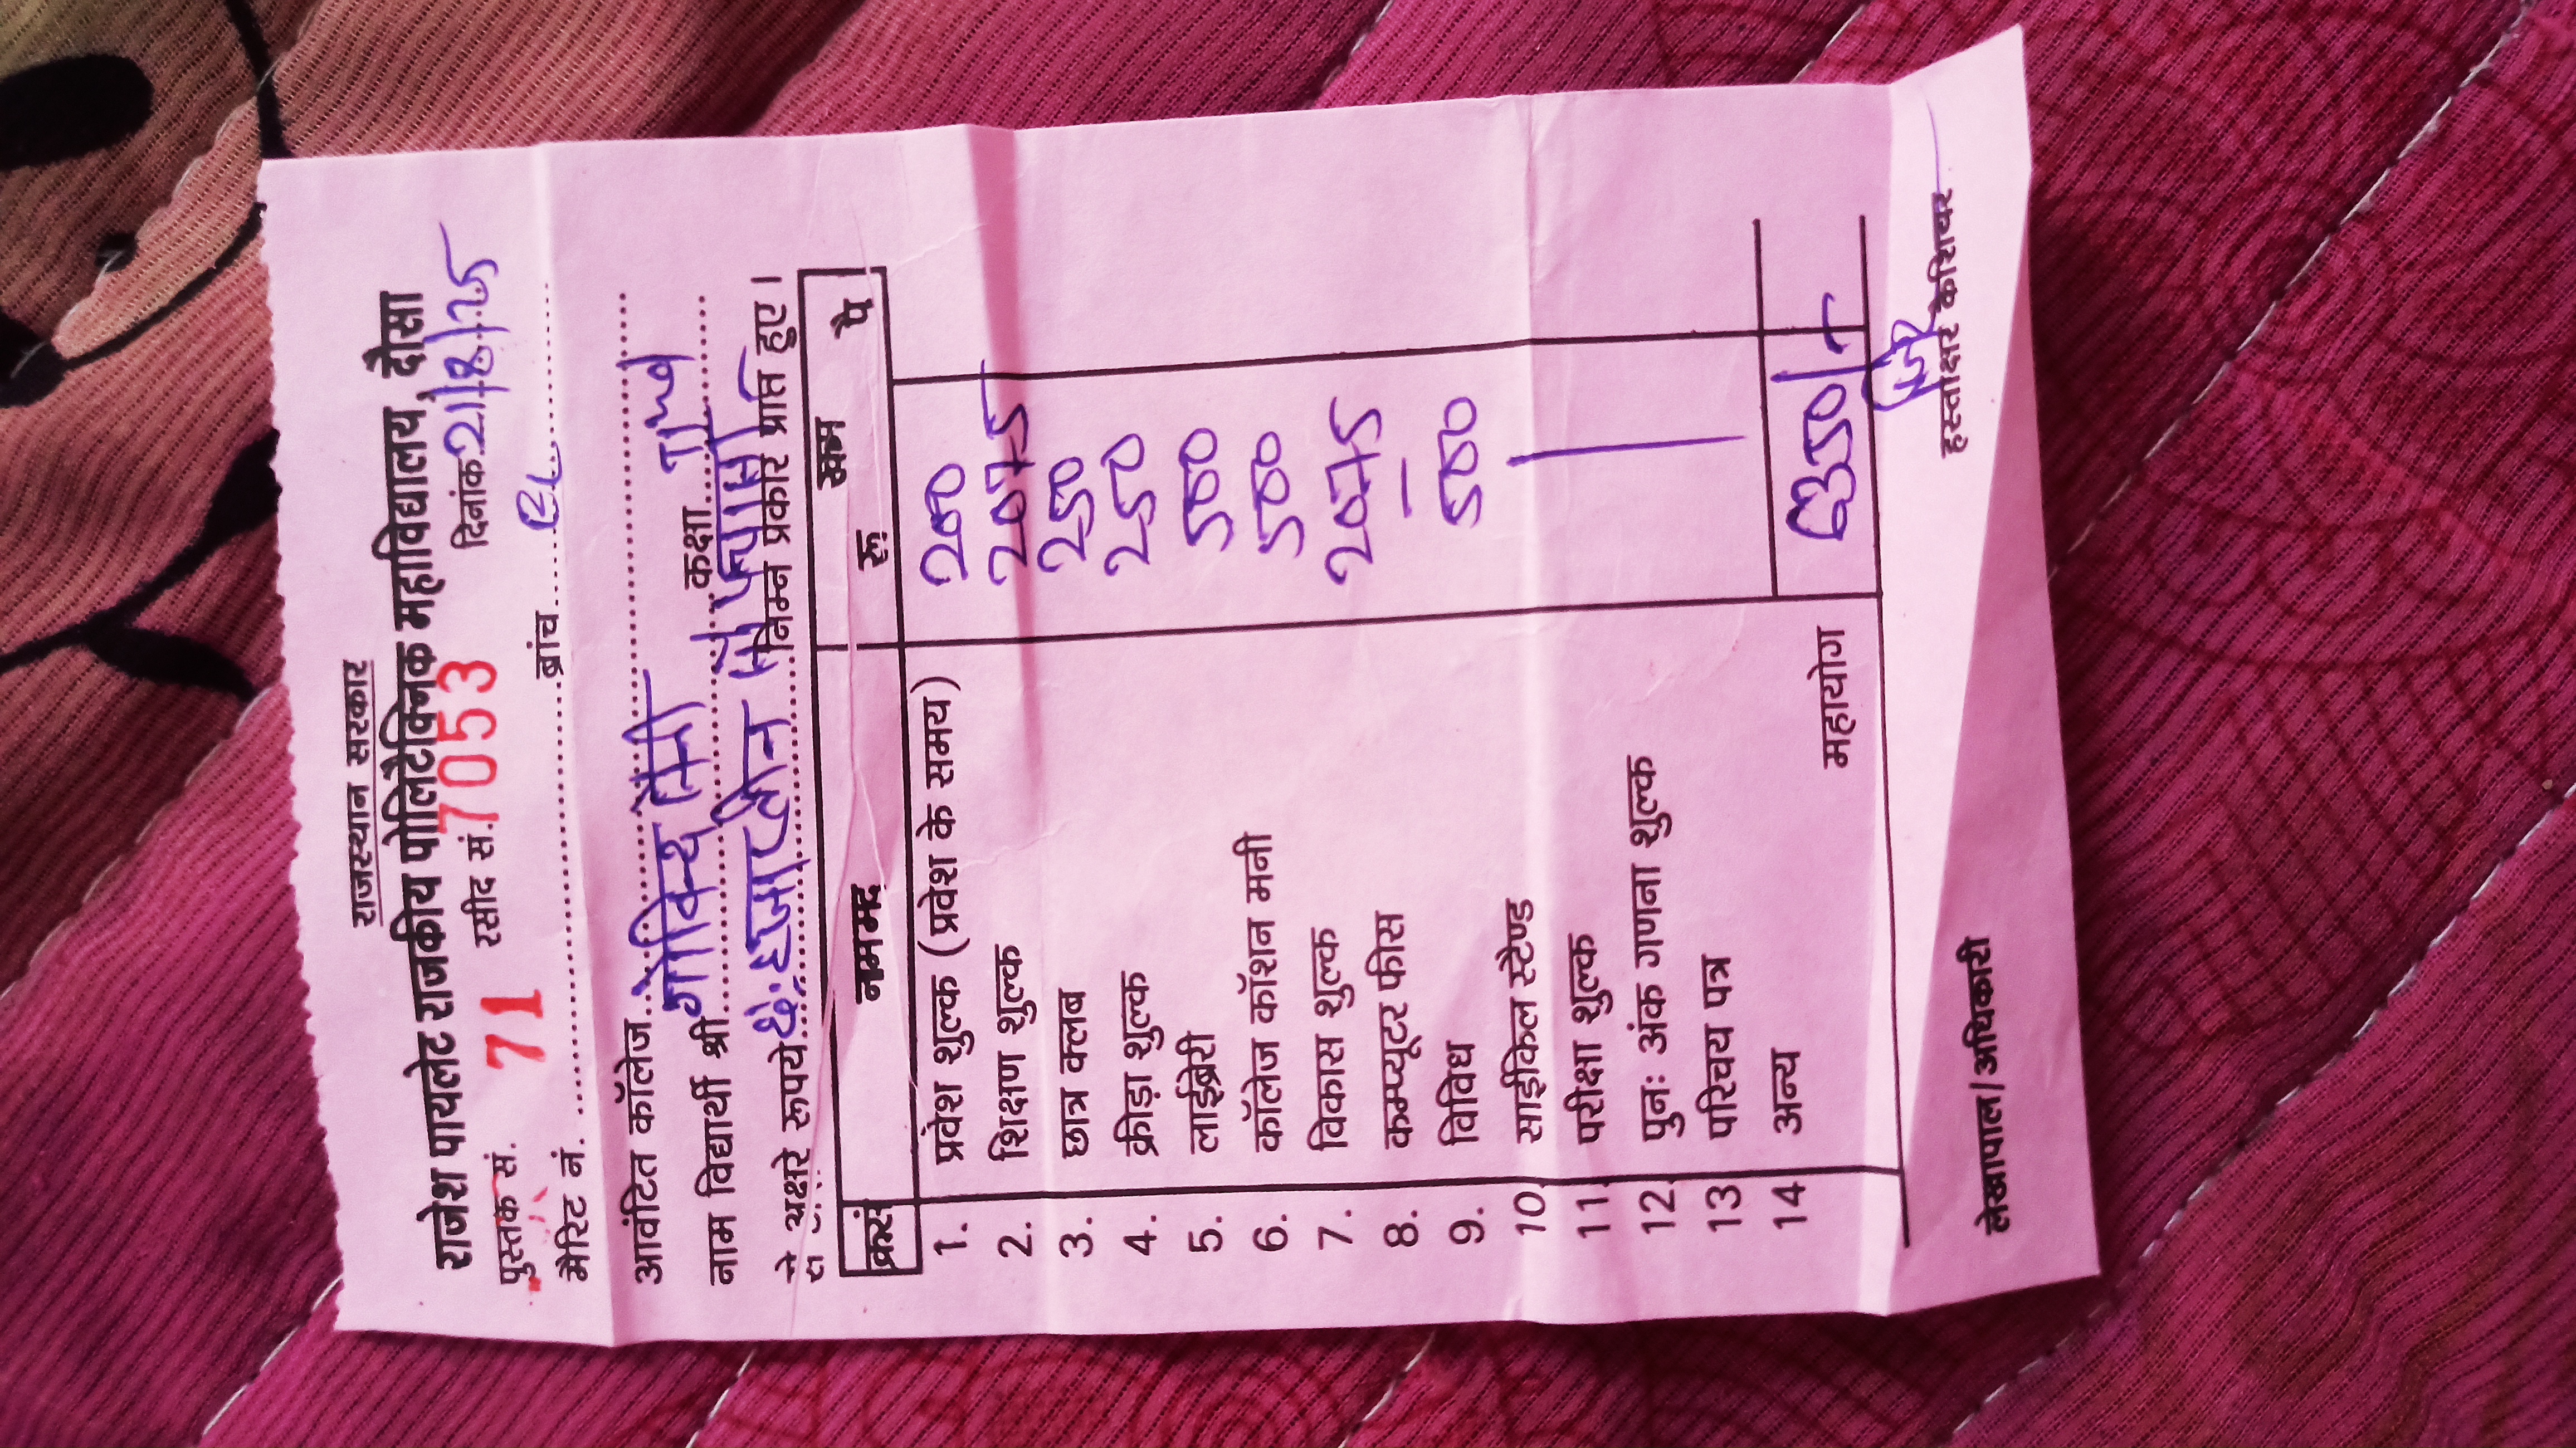 राजस्थान सरकार
राजेश पायलेट राजकीय पोलिटैक्निक महाविद्यालय, दौसा
पुस्तक सं. 71 रसीद सं. 7053 दिनांक 21/8/25
मैरिट नं. .......... ब्रांच.....
आवंटित कॉलेज.....
नाम विद्यार्थी श्री गोविन्द सैनी कक्षा.....
से अक्षरे रूपये छः हजार तीन सौ पचास निम्न प्रकार प्राप्त हुए।
क्रसं नाममद रकम
रू. पै
1. प्रवेश शुल्क (प्रवेश के समय) 200
2. शिक्षण शुल्क 2075
3. छात्र क्लब 250
4. क्रीड़ा शुल्क 250
5. लाईब्रेरी 500
6. कॉलेज कॉशन मनी 500
7. विकास शुल्क 2075
8. कम्प्यूटर फीस –
9. विविध 500
10. साईकिल स्टैण्ड
11. परीक्षा शुल्क
12. पुनः अंक गणना शुल्क
13 परिचय पत्र
14 अन्य
महायोग 6350/-
लेखापाल/अधिकारी हस्ताक्षर केशियर